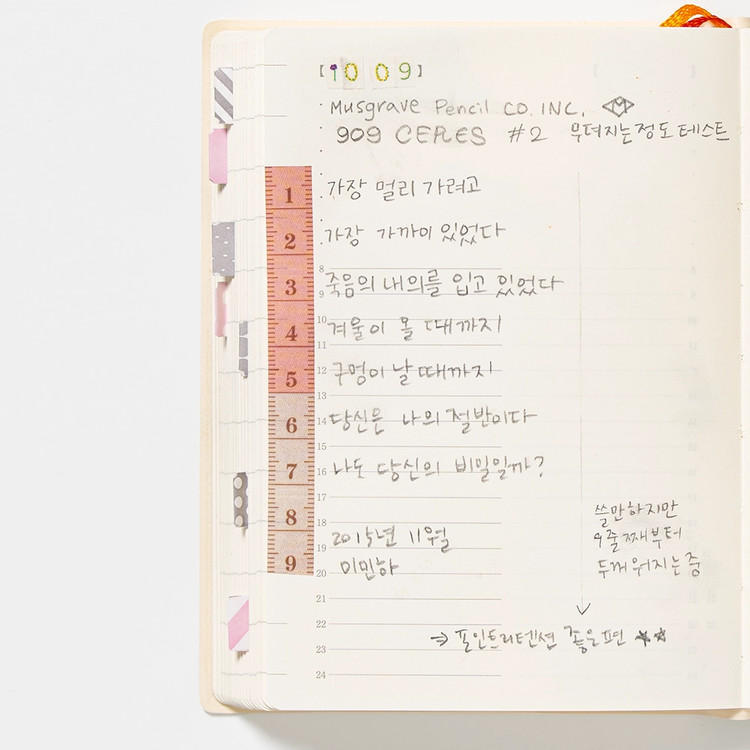 [10 09]
Musgrave Pencil CO. INC.
909 CERES #2 무뎌지는정도테스트
1 가장 멀리 가려고
2 가장 가까이 있었다
8
3 죽음의 내의를 입고 있었다
9
10
4 겨울이 올 때까지
11
12
5 구멍이 날 때까지
13
6 14 당신은 나의 절반이다
15
7 16 나도 당신의 비밀일까?
17
8 18
2015년 11월
19
9 이민하
20
쓸만하지만
9줄째부터
두꺼워지는 중
21
22
⇒ 포인트리텐션 좋은편 ★☆
23
24